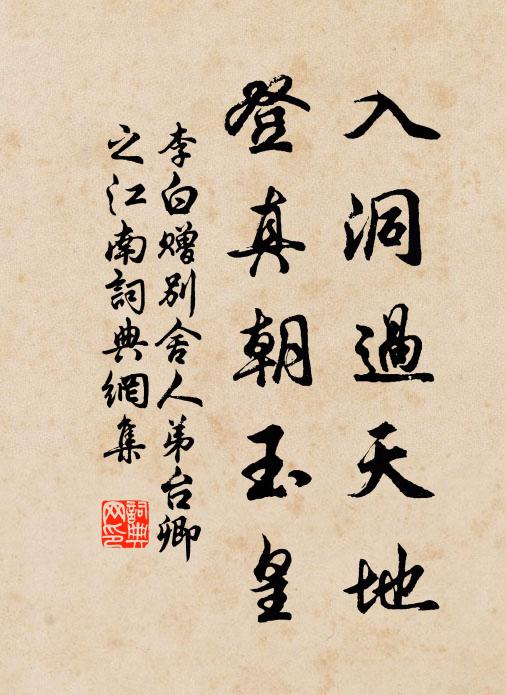 入洞過天地
登真朝玉皇
李白赠别舍人弟台卿
之江南詞典網集
詞典
网印